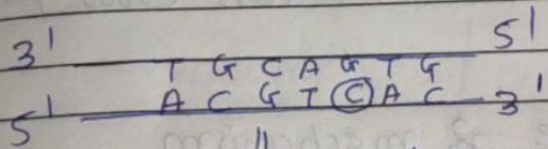 3' T G C A G T G 5'
5' A C G T C A C 3'